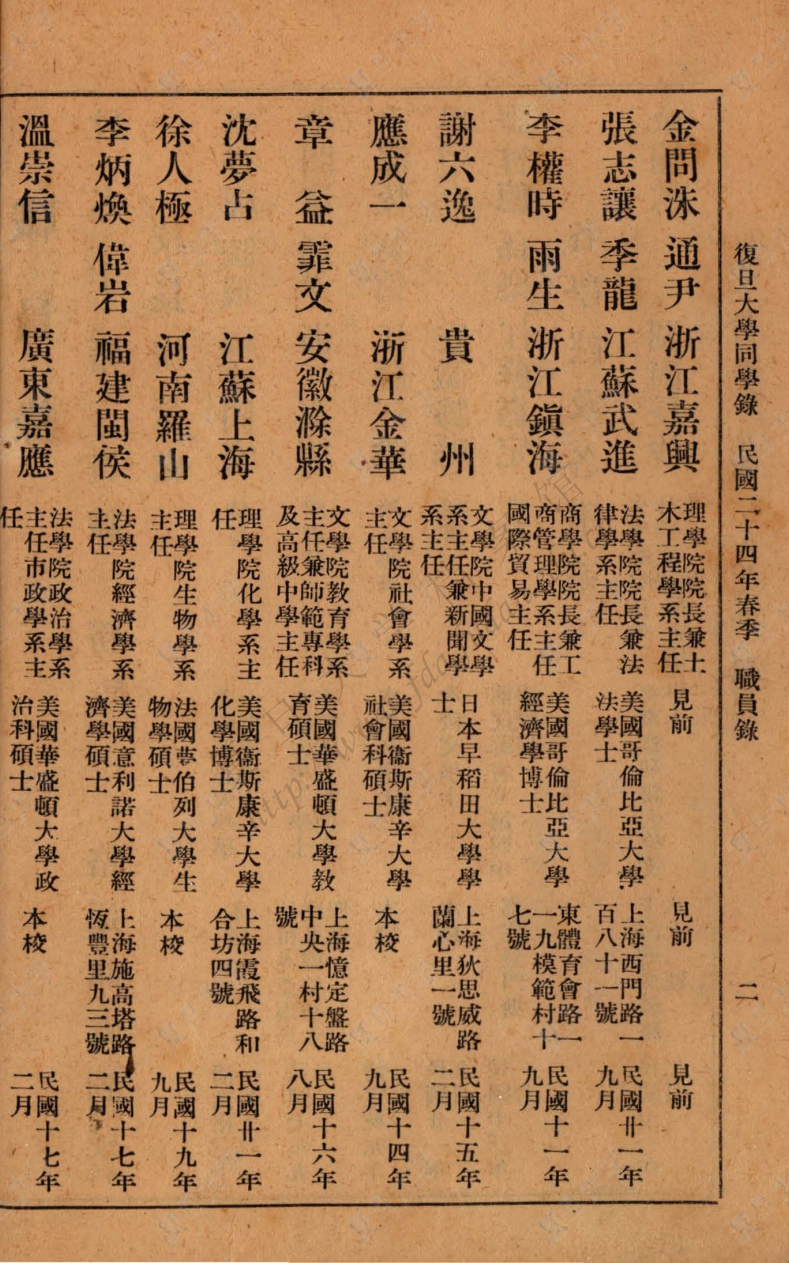 復旦大學同學錄 民國二十四年春季 職員錄 二
金問洙 通尹 浙江嘉興 理學院院長兼土木工程學系主任 見前 見前 見前
張志讓 季龍 江蘇武進 法學院院長兼法律學系主任 美國哥倫比亞大學法學士 上海西門路一百八十一號 民國廿一年九月
李權時 雨生 浙江鎭海 商學院院長兼工商管理學系主任國際貿易主任 美國哥倫比亞大學經濟學博士 東體育會路一一九模範村十七號 民國十一年九月
謝六逸 貴州 文學院中國文學系主任兼新聞學系主任 日本早稻田大學學士 上海狄思威路蘭心里一號 民國十五年二月
應成一 浙江金華 文學院社會學系主任 美國衞斯康辛大學社會科碩士 本校 民國十四年九月
章益 霏文 安徽滁縣 文學院教育學系主任兼師範專科及高級中學主任 美國華盛頓大學教育碩士 上海憶定盤路中央一村十八號 民國十六年八月
沈夢占 江蘇上海 理學院化學系主任 美國衞斯康辛大學化學博士 上海霞飛路和合坊四號 民國廿一年二月
徐人極 河南羅山 理學院生物學系主任 法國夢伯列大學生物學碩士 本校 民國十九年九月
李炳煥 偉岩 福建閩侯 法學院經濟學系主任 美國意利諾大學經濟學碩士 上海施高塔路恆豐里九三號 民國十七年二月
溫崇信 廣東嘉應 法學院政治學系主任市政學系主任 美國華盛頓大學政治科碩士 本校 民國十七年二月